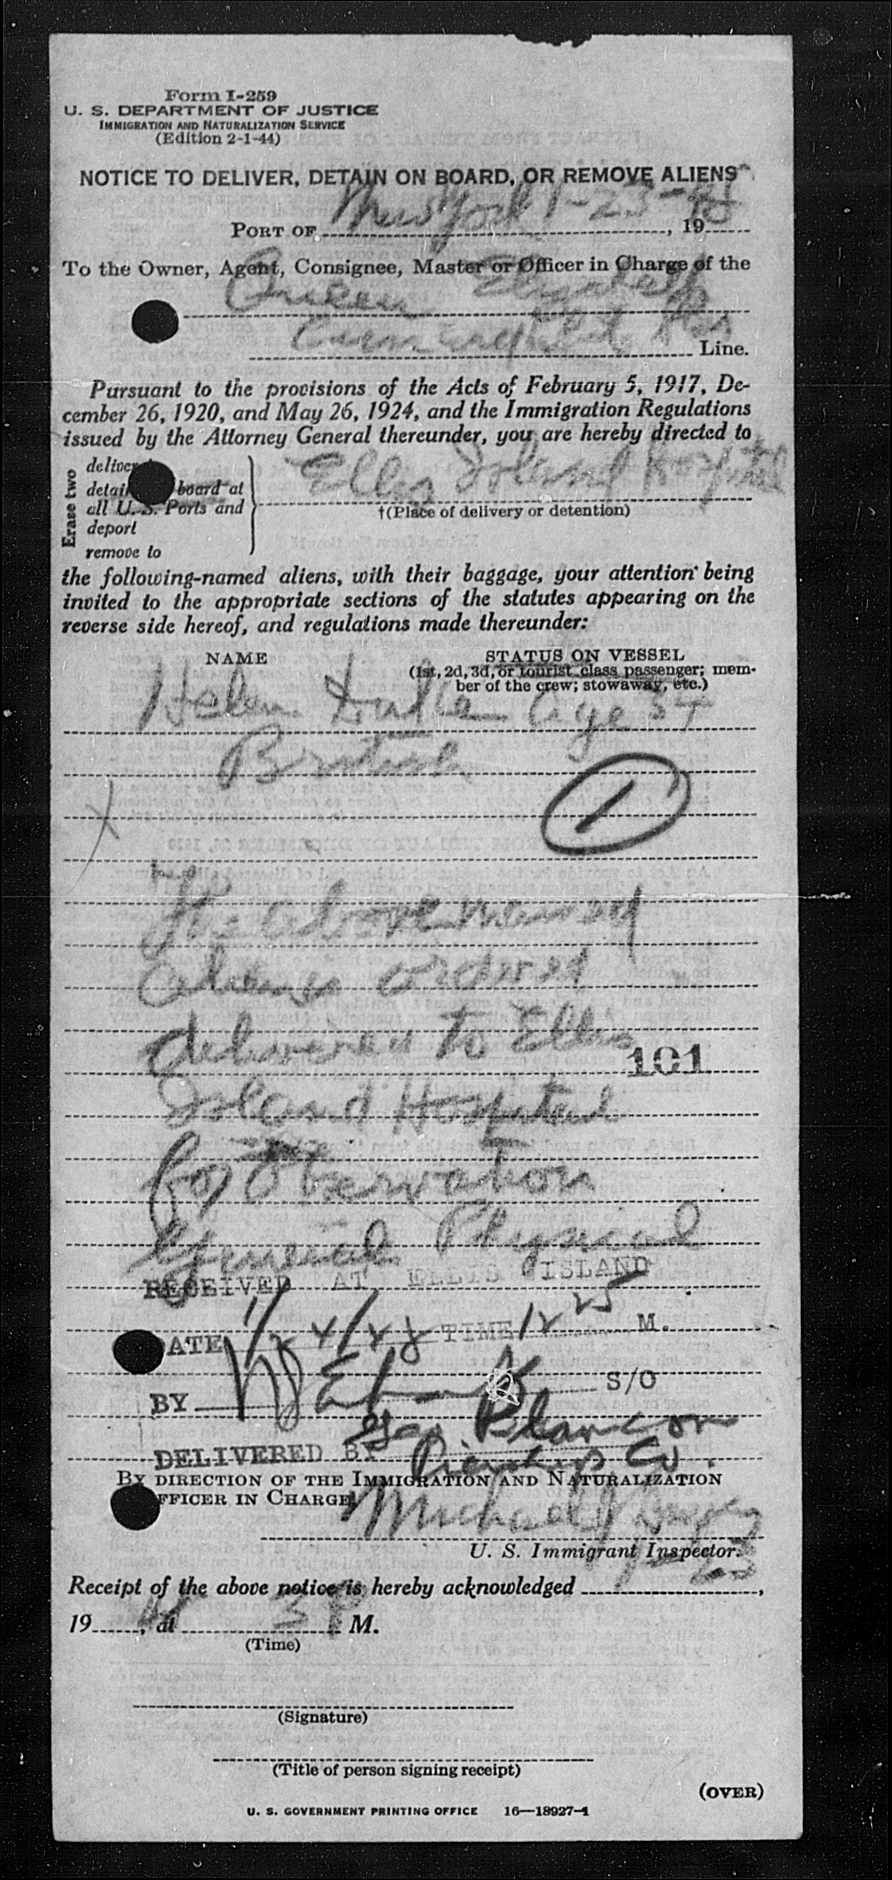 Form I-259
U. S. DEPARTMENT OF JUSTICE
IMMIGRATION AND NATURALIZATION SERVICE
(Edition 2-1-44)
NOTICE TO DELIVER, DETAIN ON BOARD, OR REMOVE ALIENS
PORT OF New York 1-23-48, 19
To the Owner, Agent, Consignee, Master or Officer in Charge of the
Queen Elizabeth
Line.
Pursuant to the provisions of the Acts of February 5, 1917, De-
cember 26, 1920, and May 26, 1924, and the Immigration Regulations
issued by the Attorney General thereunder, you are hereby directed to
Erase two
deliver
detain board at
all U. S. Ports and
deport
remove to
Ellis Island Hospital
†(Place of delivery or detention)
the following-named aliens, with their baggage, your attention being
invited to the appropriate sections of the statutes appearing on the
reverse side hereof, and regulations made thereunder:
NAME STATUS ON VESSEL
(1st, 2d, 3d, or tourist class passenger; mem-
ber of the crew; stowaway, etc.)
Helen age
British
1
The above named
aliens ordered
delivered to Ellis
101
Island Hospital
for Observation
General Physical
RECEIVED AT ELLIS ISLAND
DATE 1/24/48 TIME 12 25 M.
BY S/O
DELIVERED BY
Co.
BY DIRECTION OF THE IMMIGRATION AND NATURALIZATION
OFFICER IN CHARGE
Michael J
U. S. Immigrant Inspector.
1-23
Receipt of the above notice is hereby acknowledged ,
19 48, at 3 P M.
(Time)
(Signature)
(Title of person signing receipt)
(OVER)
U. S. GOVERNMENT PRINTING OFFICE 16—18927-1